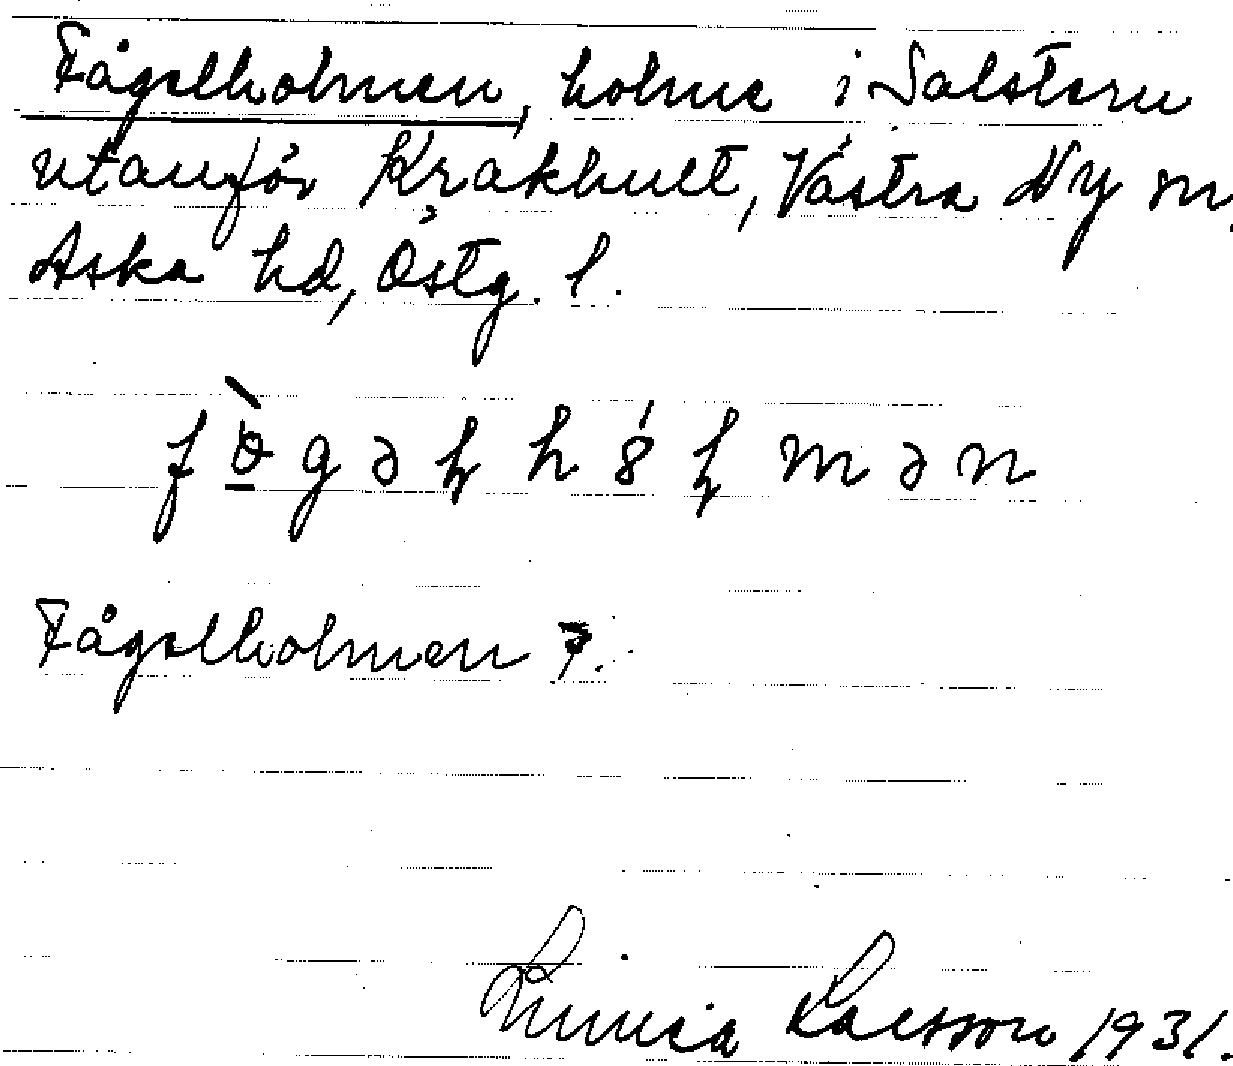 Fågelholmen, holme i Salstern
utanför Kråkhult, Västra Ny sn,
Aska hd, Östg. l.
Fågelholmen
Linnea Larsson 1931.